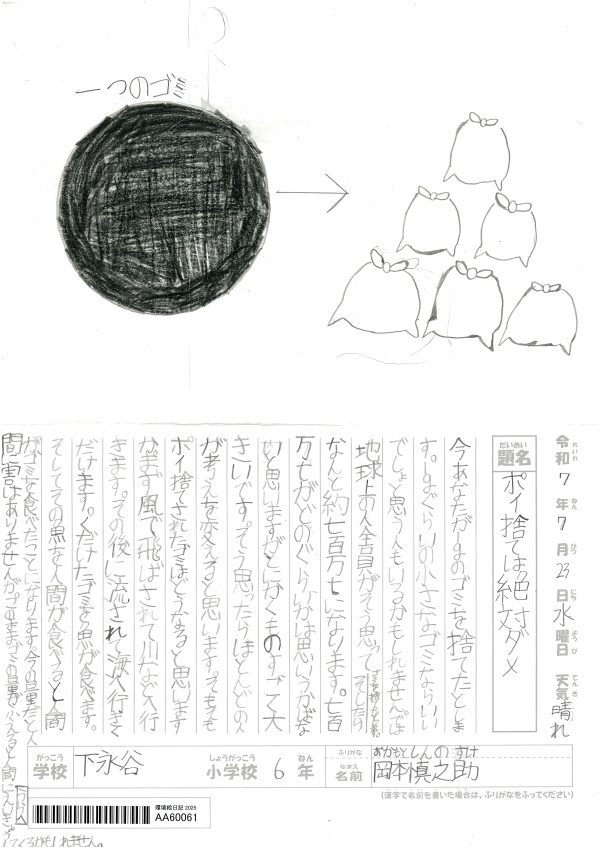 一つのゴミ
令和7年7月23日水曜日 天気晴れ
れいわ ねん がつ にち ようび てんき
だいめい
題名 ポイ捨ては絶対ダメ
今あなたが1gのゴミを捨てたとしま
す。1gぐらいの小さなゴミならいい
でしょと思う人もいるかもしれません。では
地球上の人全員がそう思って
ゴミを捨てたと
そしたら
なんと約七百万tになります。七百
万tがどのぐらいかは思いうかばな
いと思いますがとにかくものすごく大
きいです。そう思ったらほとんどの人
が考えを変えると思います。ってもそも
ポイ捨てされたゴミはどうなると思います
かまず風で飛ばされて川などへ行
きます。その後に流されて海へ行きく
だけます。くだけたゴミを魚が食べます。
そしてその魚を人間が食べると人間
がゴミを食べたことになります。今の量だと人
間に害はありませんがこのままゴミの量が
ふえると人間にえいきょう
してくるかもしれません。
がっこう
学校 下永谷
しょうがっこう ねん
小学校 6年
ふりがな おかもとしんのすけ
なまえ
名前 岡本慎之助
(漢字で名前を書いた場合は、ふりがなをふってください)
環境絵日記 2025
AA60061